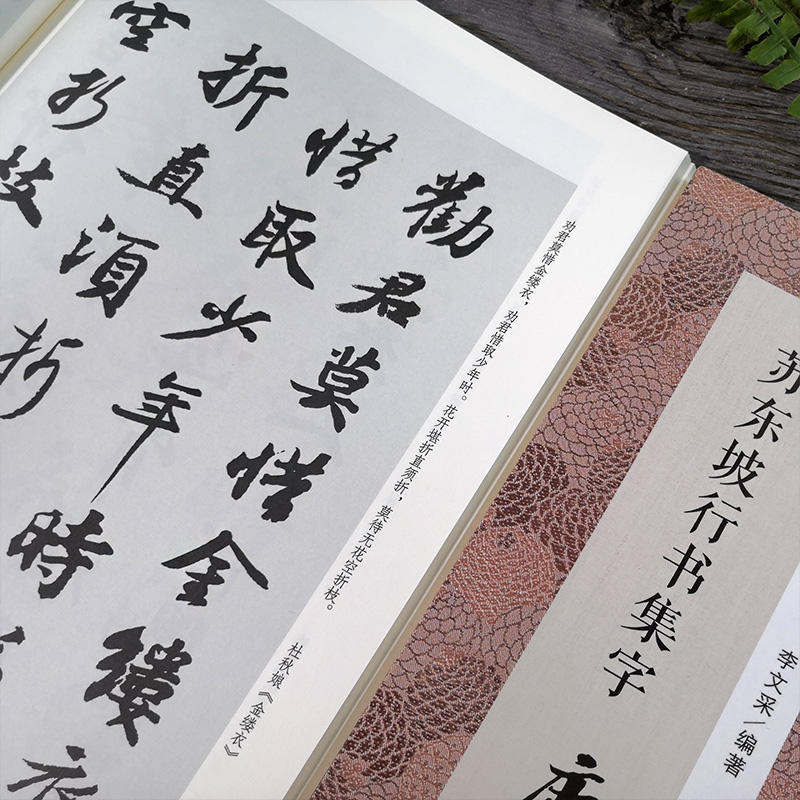 劝君莫惜金缕衣，劝君惜取少年时。花开堪折直须折，莫待无花空折枝。
杜秋娘《金缕衣》
勸君莫惜金縷衣
惜取少年時
折直須折
空折枝
苏东坡行书集字
李文采/编著